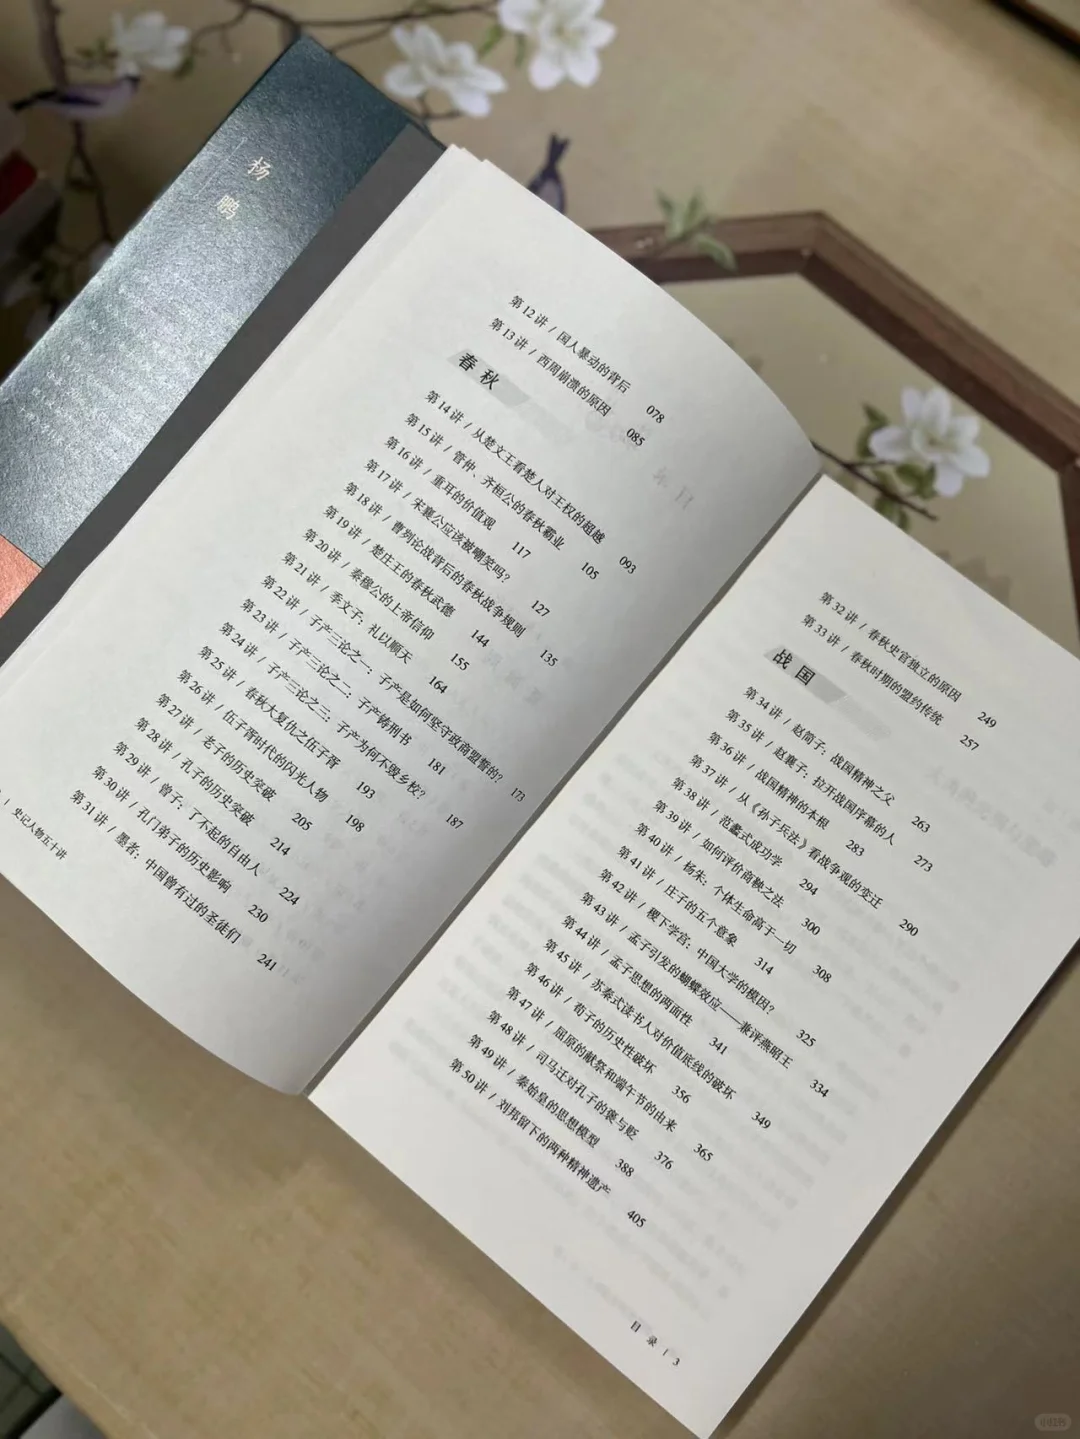 杨鹏
第12讲 / 国人暴动的背后 078
第13讲 / 西周崩溃的原因 085
春秋
第14讲 / 从楚文王看楚人对王权的超越 093
第15讲 / 管仲、齐桓公的春秋霸业 105
第16讲 / 重耳的价值观 117
第17讲 / 宋襄公应该被嘲笑吗? 127
第18讲 / 曹刿论战背后的春秋战争规则 135
第19讲 / 楚庄王的春秋武德 144
第20讲 / 秦穆公的上帝信仰 155
第21讲 / 季文子:礼以顺天 164
第22讲 / 子产三论之一:子产是如何坚守政商盟誓的? 173
第23讲 / 子产三论之二:子产铸刑书 181
第24讲 / 子产三论之三:子产为何不毁乡校? 187
第25讲 / 春秋大复仇之伍子胥 193
第26讲 / 伍子胥时代的闪光人物 198
第27讲 / 老子的历史突破 205
第28讲 / 孔子的历史突破 214
第29讲 / 曾子:了不起的自由人 224
第30讲 / 孔门弟子的历史影响 230
第31讲 / 墨者:中国曾有过的圣徒们 241
| 史记人物五十讲
第32讲 / 春秋史官独立的原因 249
第33讲 / 春秋时期的盟约传统 257
战国
第34讲 / 赵简子:战国精神之父 263
第35讲 / 赵襄子:拉开战国序幕的人 273
第36讲 / 战国精神的本根 283
第37讲 / 从《孙子兵法》看战争观的变迁 290
第38讲 / 范蠡式成功学 294
第39讲 / 如何评价商鞅之法 300
第40讲 / 杨朱:个体生命高于一切 308
第41讲 / 庄子的五个意象 314
第42讲 / 稷下学宫:中国大学的模因? 325
第43讲 / 孟子引发的蝴蝶效应——兼评燕昭王 334
第44讲 / 孟子思想的两面性 341
第45讲 / 苏秦式读书人对价值底线的破坏 349
第46讲 / 荀子的历史性破坏 356
第47讲 / 屈原的献祭和端午节的由来 365
第48讲 / 司马迁对孔子的褒与贬 376
第49讲 / 秦始皇的思想模型 388
第50讲 / 刘邦留下的两种精神遗产 405
目录 | 3
小红书